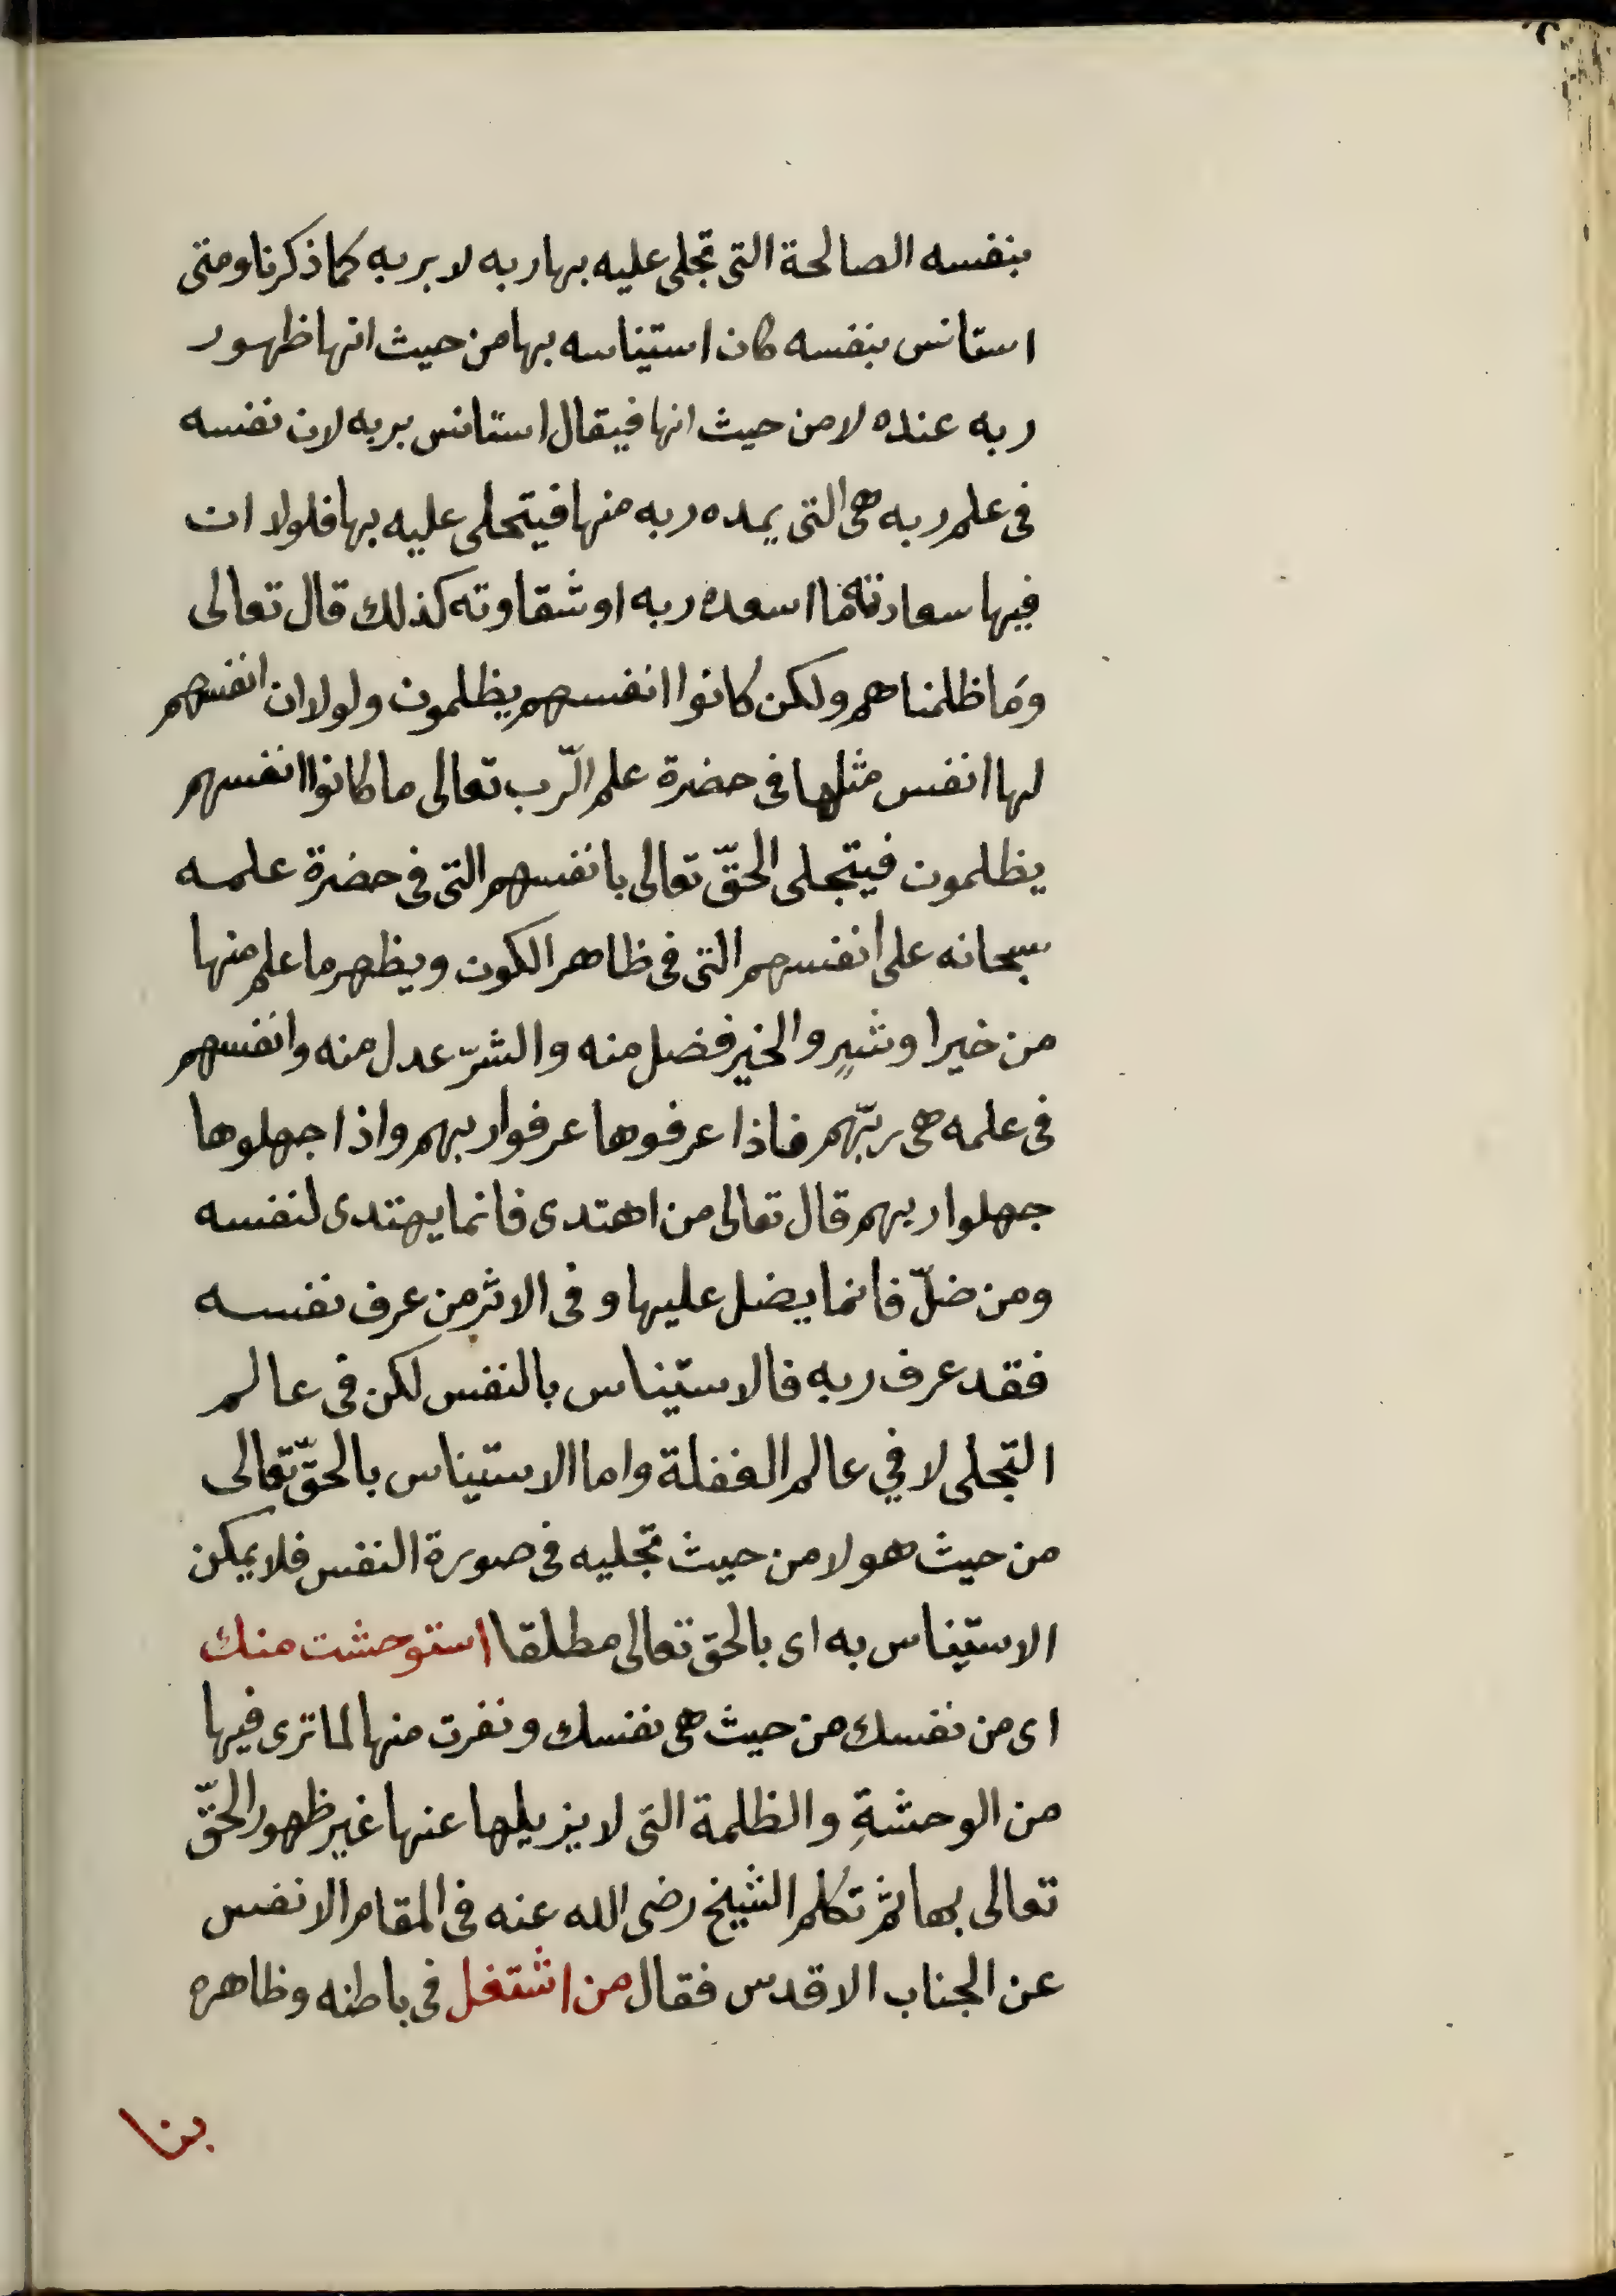 بنفسه الصالحة التى تجلى عليه بها ربه لا بربه كما ذكرنا ومتى
استانس بنفسه كان استيناسه بها من حيث انها ظهور
ربه عنده لا من حيث انها فيقال استانس بربه لان نفسه
فى علم ربه هى التى يمده ربه منها فيتجلى عليه بها فلولا ان
فيها سعادته ما اسعده ربه او شقاوته كذلك قال تعالى
وَما ظلمناهم ولكن كانوا انفسهم يظلمون ولولا ان انفسهم
لها انفس مثلها فى حضرة علم الرّب تعالى ما كانوا انفسهم
يظلمون فيتجلى الحقّ تعالى بانفسهم التى فى حضرة علمه
سبحانه على أنفسهم التى فى ظاهر الكون ويظهر ما علم منها
من خير او شرٍ والخير فضل منه والشرّ عدل منه وانفسهم
فى علمه هى ربّهم فاذا عرفوها عرفوا ربهم واذا جهلوها
جهلوا ربهم قال تعالى من اهتدى فانما يهتدى لنفسه
ومن ضلّ فانما يضل عليها و فى الاثر من عرف نفسه
فقد عرف ربه فالاستيناس بالنفس لكن فى عالم
التجلى لا في عالم الغفلة واما الاستيناس بالحقّ تعالى
من حيث هو لا من حيث تجليه فى صورة النفس فلا يمكن
الاستيناس به اى بالحق تعالى مطلقا استوحشت منك
اى من نفسك من حيث هى نفسك ونفرت منها لما ترى فيها
من الوحشةِ والظلمة التى لا يزيلها عنها غير ظهور الحقّ
تعالى بها ثم تكلم الشيخ رضى الله عنه فى المقام الانفس
عن الجناب الاقدس فقال من اشتغل فى باطنه وظاهره
بنا